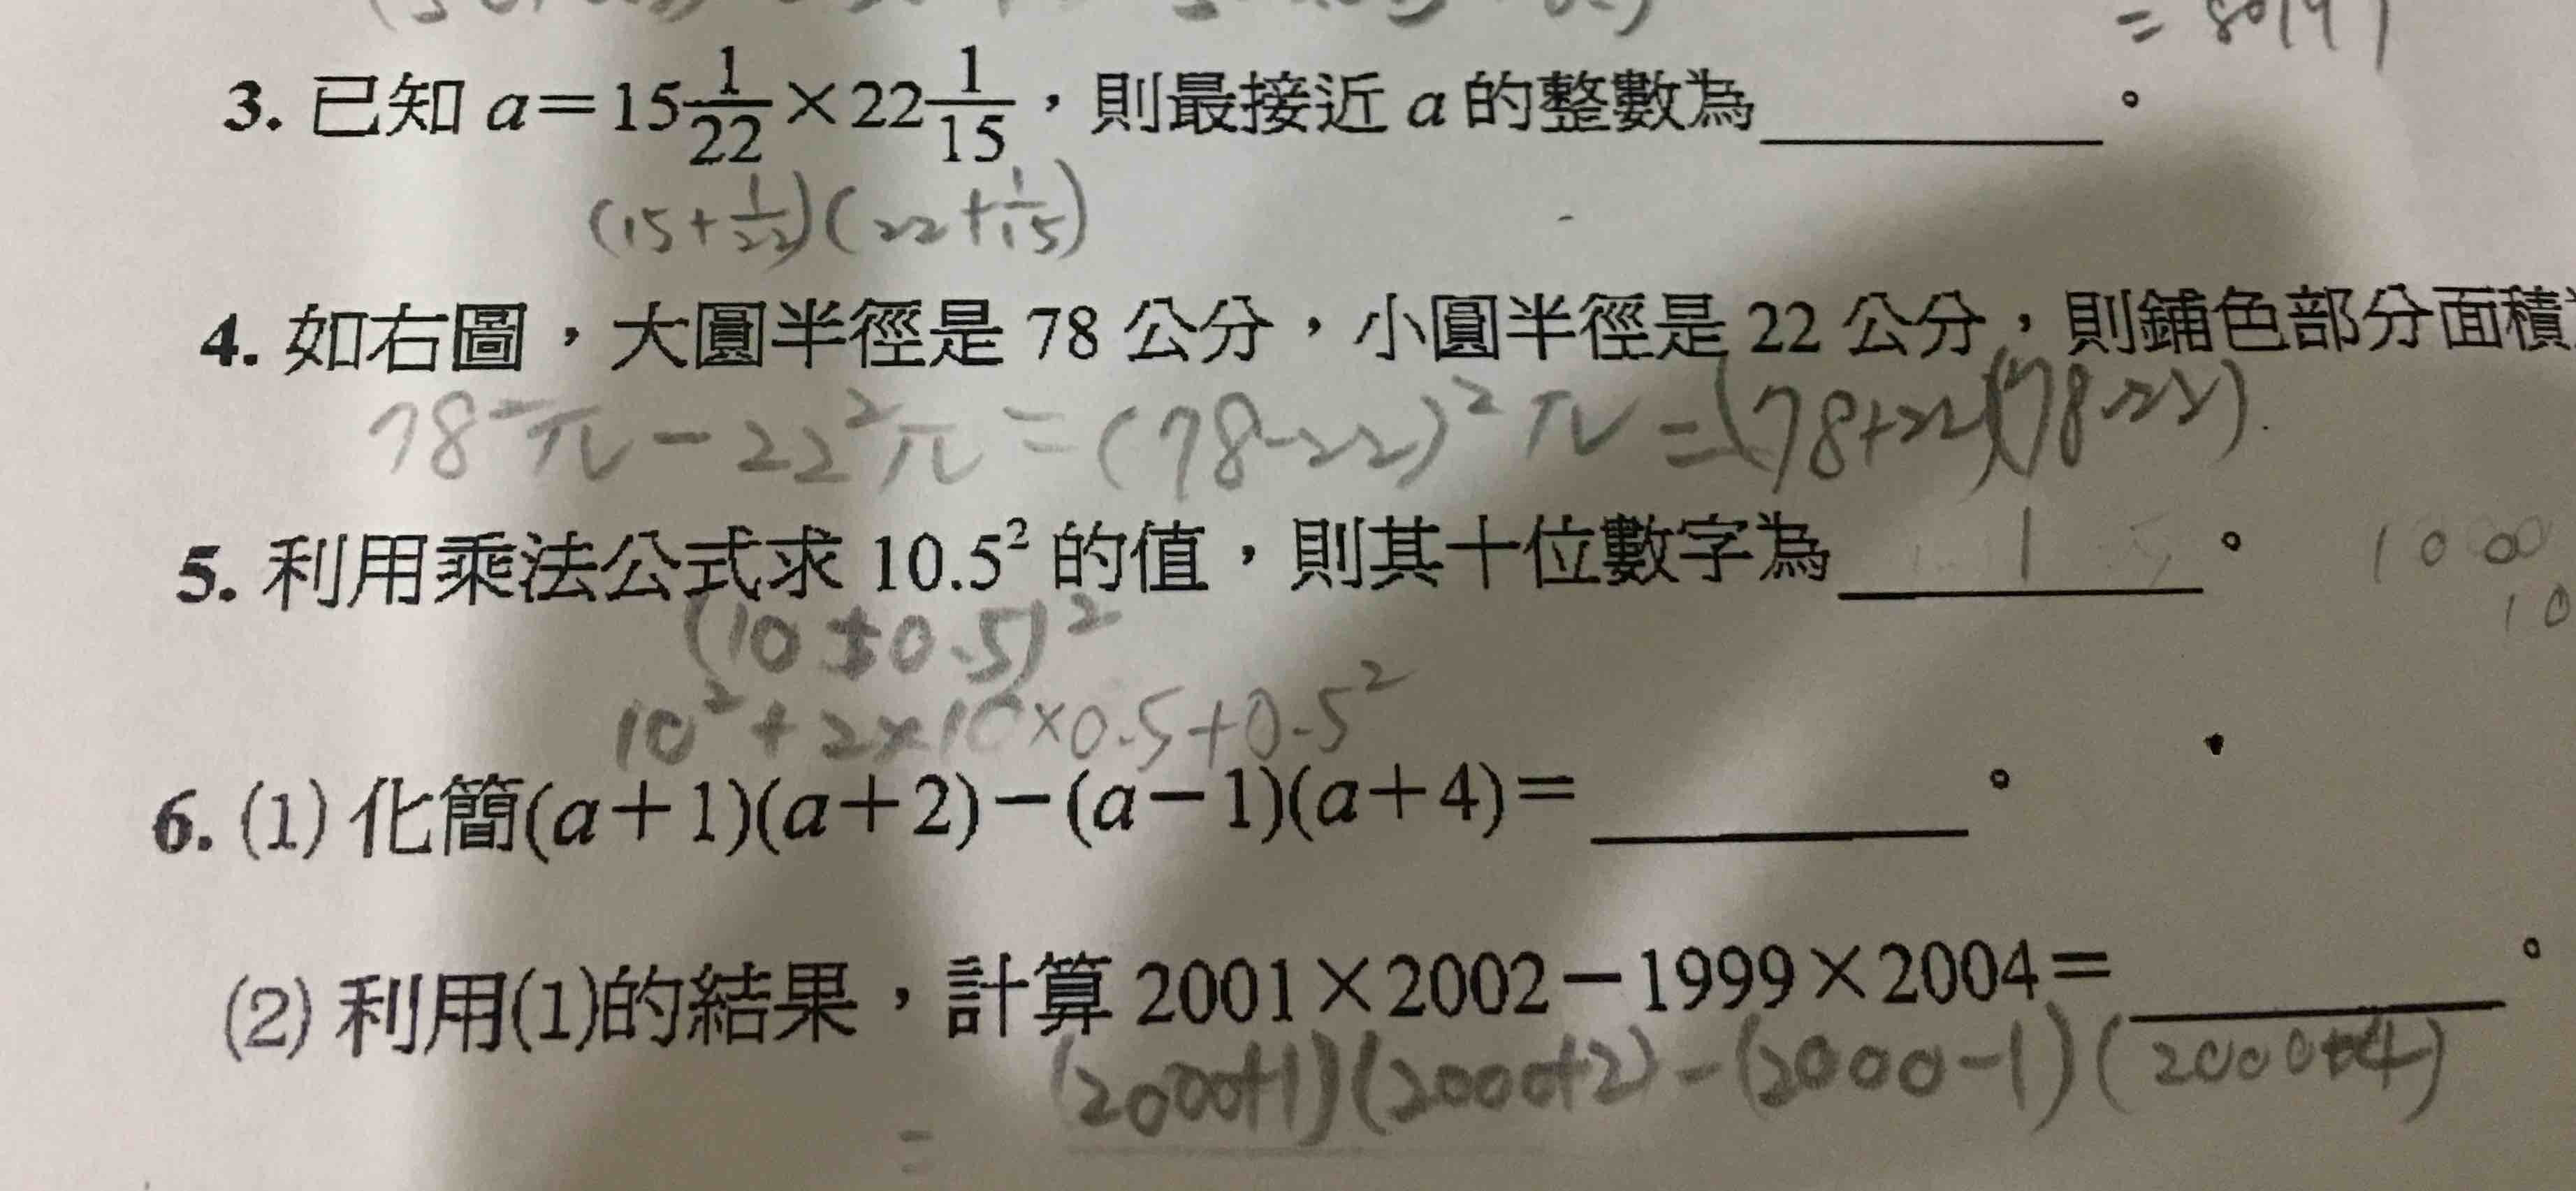 = 8019
3. 已知 a=15 1/22 × 22 1/15，則最接近 a 的整數為________。
(15+1/22)(22+1/15)
4. 如右圖，大圓半徑是 78 公分，小圓半徑是 22 公分，則鋪色部分面積
78²π-22²π=(78-22)²π=(78+22)(78-22)
5. 利用乘法公式求 10.5² 的值，則其十位數字為 1 。 1000
10
(10+0.5)²
10²+2×10×0.5+0.5²
6. (1) 化簡(a+1)(a+2)-(a-1)(a+4)=________。
(2) 利用(1)的結果，計算 2001×2002-1999×2004=________。
(2000+1)(2000+2)-(2000-1)(2000+4)
=